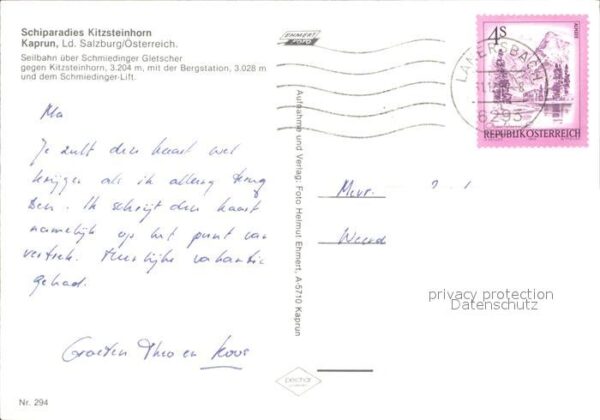 Schiparadies Kitzsteinhorn
Kaprun, Ld. Salzburg/Österreich.
Seilbahn über Schmiedinger Gletscher
gegen Kitzsteinhorn, 3.204 m, mit der Bergstation, 3.028 m
und dem Schmiedinger-Lift.
Ma
Je zult den kaart wel
krijgen als ik allang terug
ben. Ik schrijf den kaart
namelijk op het punt van
vertrek. Heerlijke vakantie
gehad.
Groeten Theo en Koos
Nr. 294
EHMERT
FOTO
Aufnahme und Verlag: Foto Helmut Ehmert, A-5710 Kaprun
pechar
4S
ALMSEE
REPUBLIK ÖSTERREICH
LANERSBACH
6293
Mevr.
Weerd
privacy protection
Datenschutz